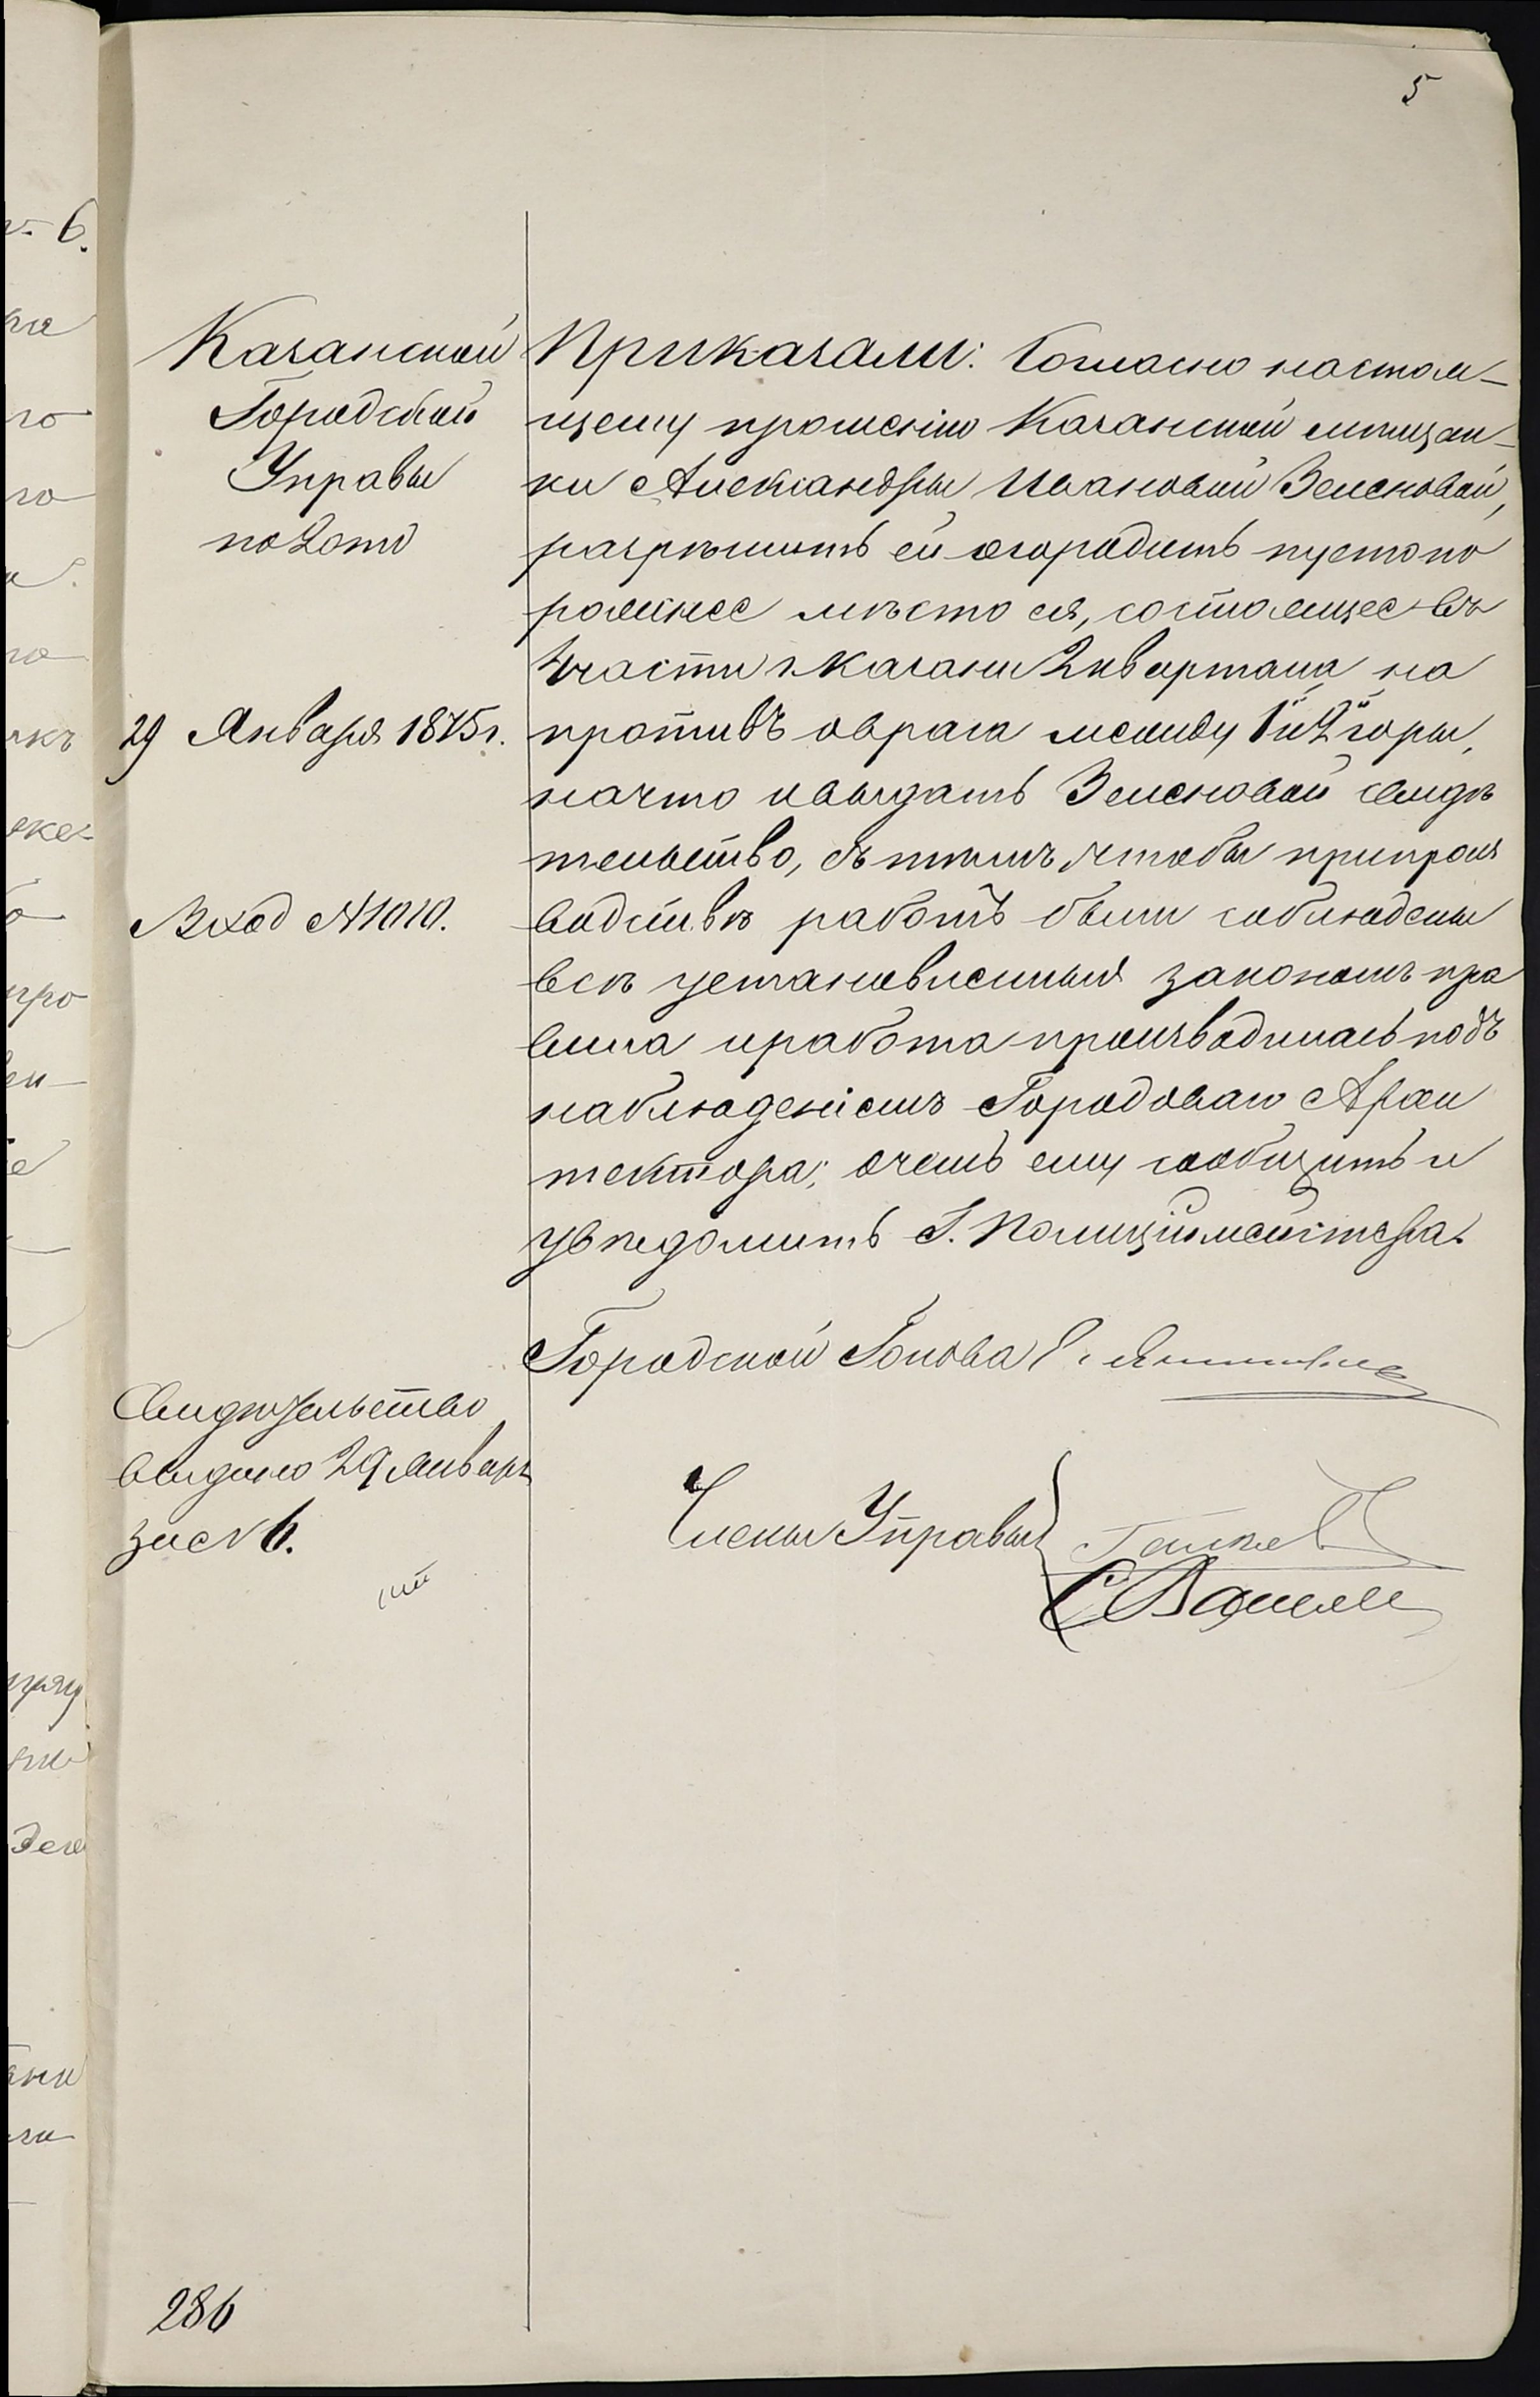 5
Казанской
Городской
Управы
по 2 отд
29 Января 1875 г.
Вход № 1010.
Приказали: Согласно настоя-
щему прошенію Казанской мѣщан-
ки Александры Ивановой Земсковой,
разрѣшить ей огородить пустопо
рожнее мѣсто ея, состоящее въ
4 части г. Казани 2 квартала на
противъ оврага между 1й и 2й горы,
на что и выдать Земсковой свидѣ
тельство, съ тѣмъ, чтобы при произ
водствѣ работъ были соблюдены
всѣ установленныя закономъ пра
вила и работа производилась подъ
наблюденіемъ Городоваго Архи
тектора; о чемъ ему сообщить и
увѣдомить Г. Полиціймейстера.
Городской Голова
Свидѣтельство
выдано 29 Января
за № 6.
Члены Управы
286